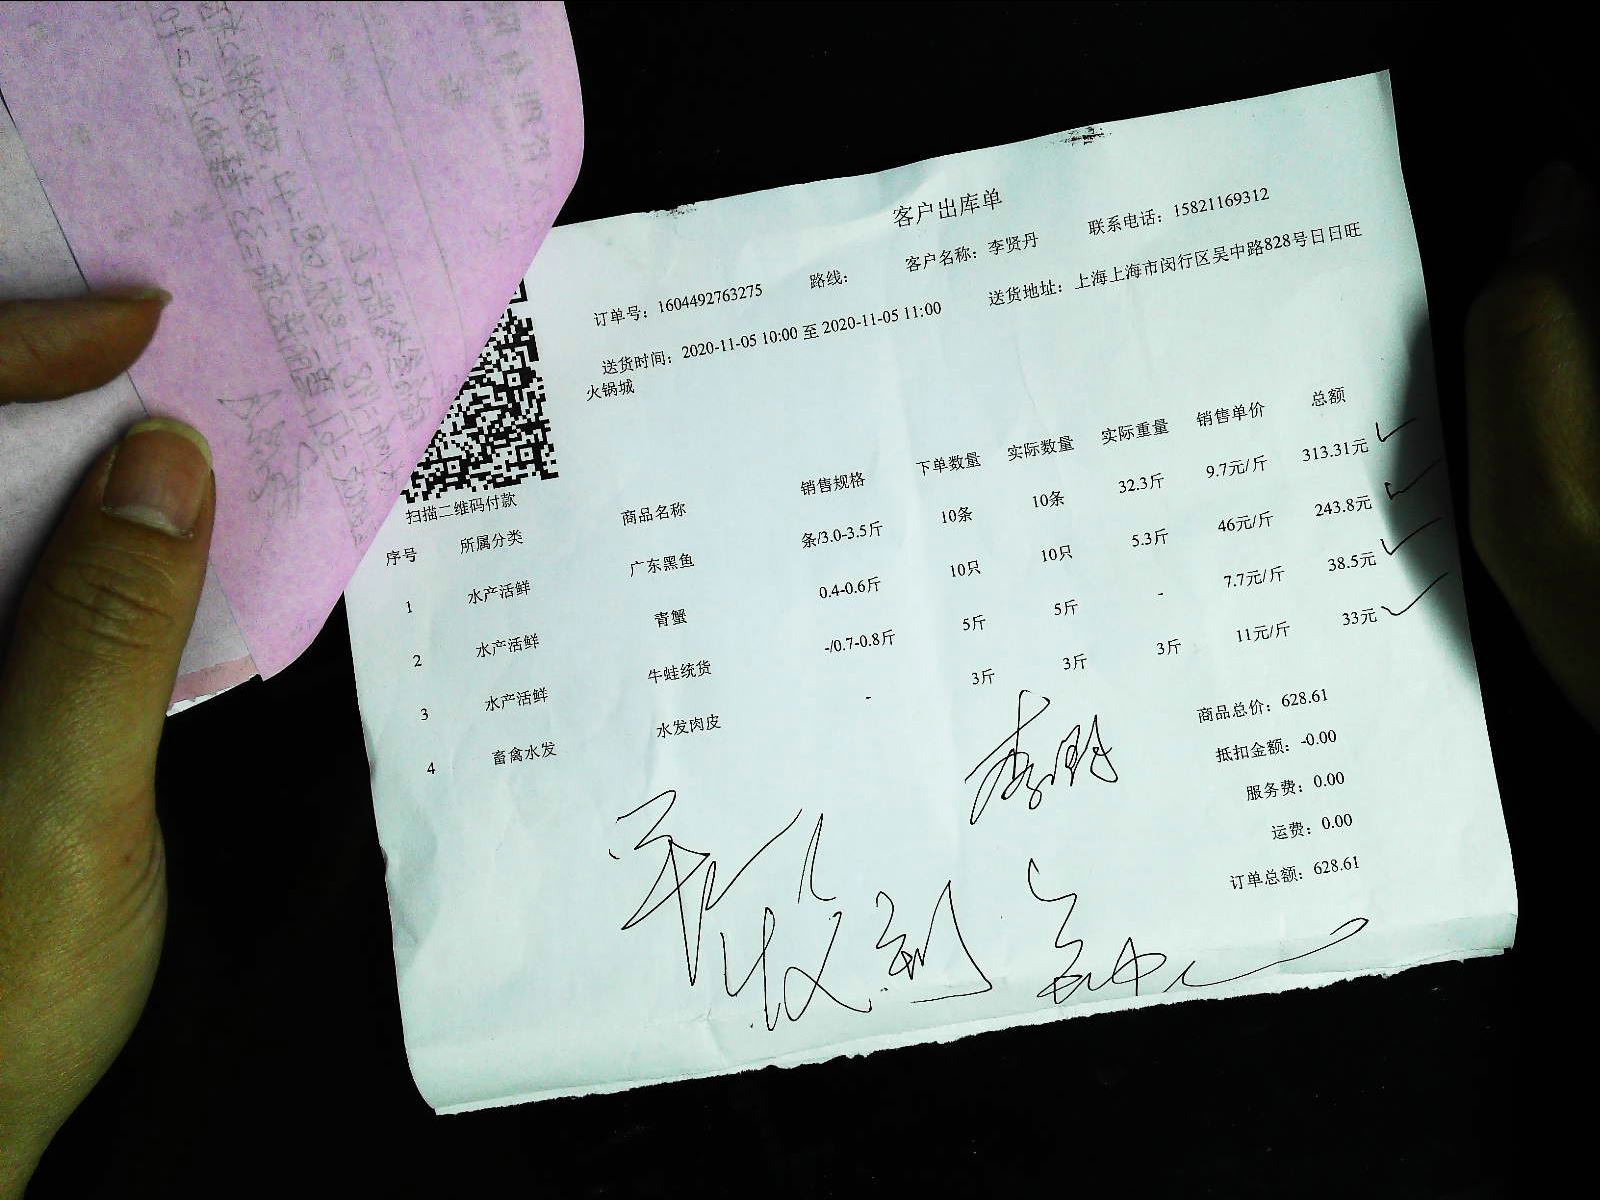 客户出库单
订单号：1604492763275 路线： 客户名称：李贤丹 联系电话：15821169312
送货时间：2020-11-05 10:00 至 2020-11-05 11:00 送货地址：上海上海市闵行区吴中路828号日日旺
火锅城
扫描二维码付款
序号 所属分类 商品名称 销售规格 下单数量 实际数量 实际重量 销售单价 总额
1 水产活鲜 广东黑鱼 条/3.0-3.5斤 10条 10条 32.3斤 9.7元/斤 313.31元
2 水产活鲜 青蟹 0.4-0.6斤 10只 10只 5.3斤 46元/斤 243.8元
3 水产活鲜 牛蛙统货 -/0.7-0.8斤 5斤 5斤 - 7.7元/斤 38.5元
4 畜禽水发 水发肉皮 - 3斤 3斤 3斤 11元/斤 33元
商品总价：628.61
抵扣金额：-0.00
服务费：0.00
运费：0.00
订单总额：628.61
收到